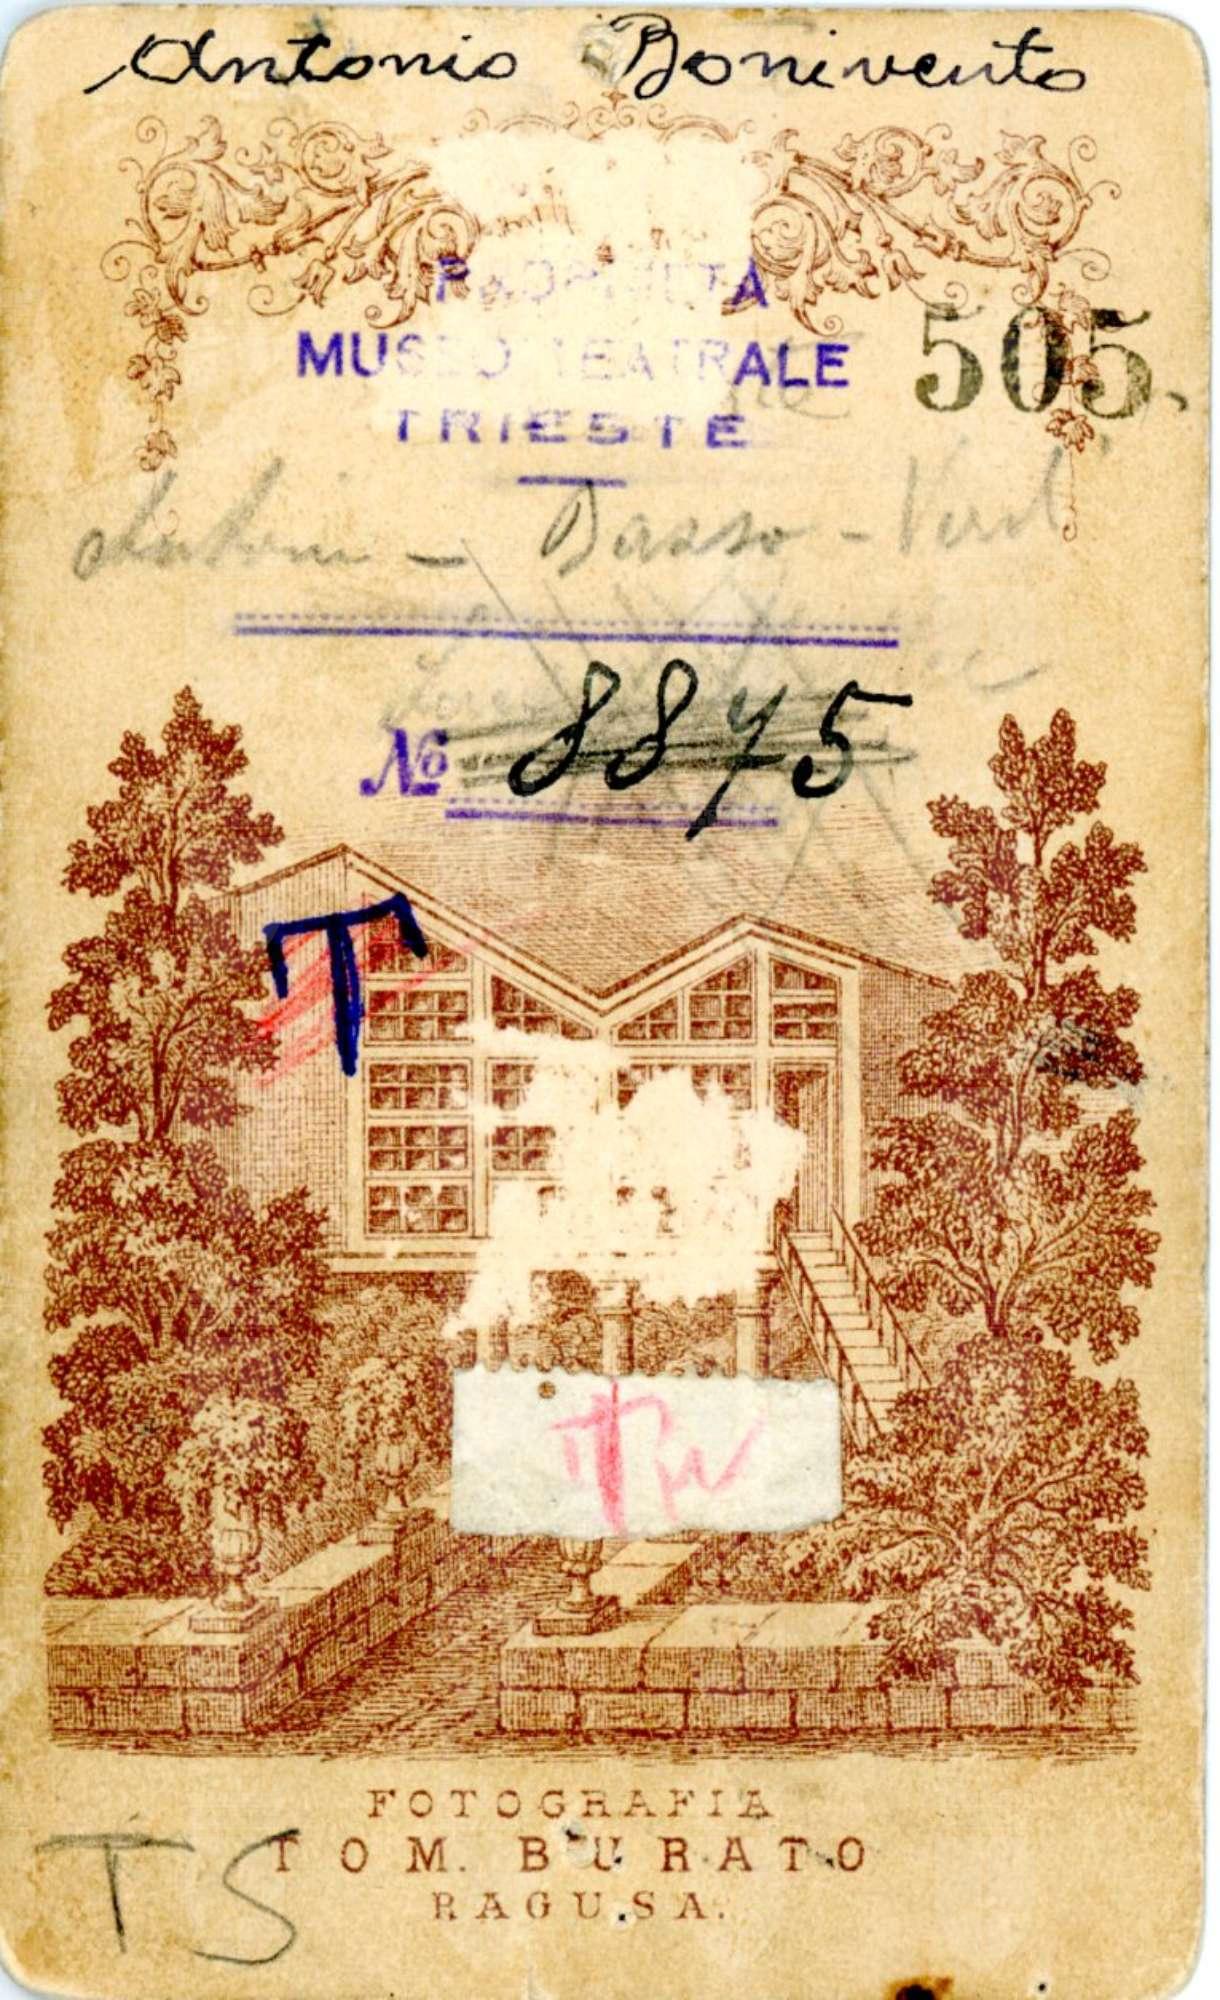 Antonio Bonivento
PROPRIETÀ
MUSEO TEATRALE
TRIESTE
505.
Basso - Verdi
№ 8875
T
T
FOTOGRAFIA
TOM. BURATO
RAGUSA.
TS